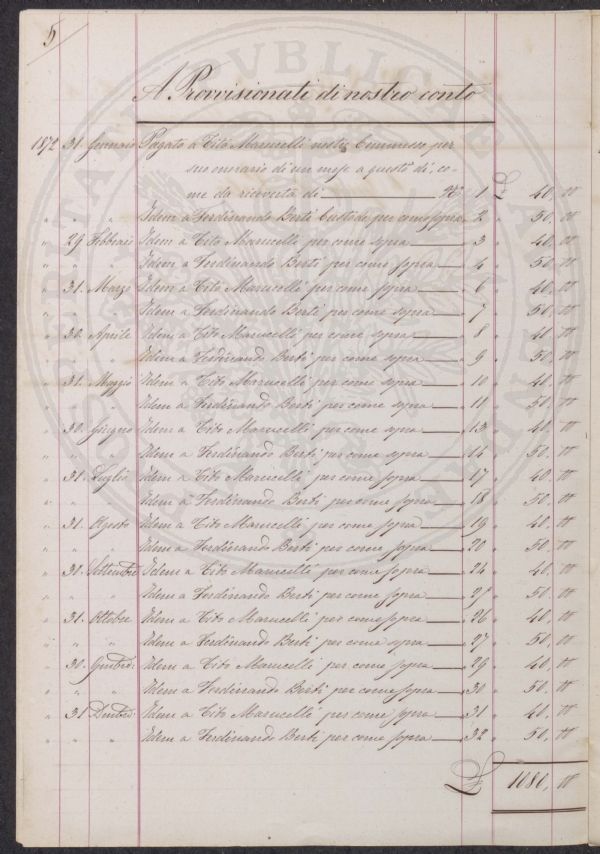 5
A Provvisionati di nostro conto
1872 31. Gennaio Pagato a Tito Marucelli nostro Commesso per
suo onorario di un mese a questo dì, co-
me da ricevuta di N° 1 £ 40, 00
" " " Idem a Ferdinando Berti Custode per come sopra " 2 " 50, 00
" 29 Febbraio Idem a Tito Marucelli per come sopra " 3 " 40, 00
" " " Idem a Ferdinando Berti per come sopra " 4 " 50, 00
" 31. Marzo Idem a Tito Marucelli per come sopra " 6 " 40, 00
" " " Idem a Ferdinando Berti per come sopra " 7 " 50, 00
" 30. Aprile Idem a Tito Marucelli per come sopra " 8 " 40, 00
" " " Idem a Ferdinando Berti per come sopra " 9 " 50, 00
" 31. Maggio Idem a Tito Marucelli per come sopra " 10 " 40, 00
" " " Idem a Ferdinando Berti per come sopra " 11 " 50, 00
" 30. Giugno Idem a Tito Marucelli per come sopra " 13 " 40, 00
" " " Idem a Ferdinando Berti per come sopra " 14 " 50, 00
" 31. Luglio Idem a Tito Marucelli per come sopra " 17 " 40, 00
" " " Idem a Ferdinando Berti per come sopra " 18 " 50, 00
" 31. Agosto Idem a Tito Marucelli per come sopra " 19 " 40, 00
" " " Idem a Ferdinando Berti per come sopra " 20 " 50, 00
" 30. Settembre Idem a Tito Marucelli per come sopra " 24 " 40, 00
" " " Idem a Ferdinando Berti per come sopra " 25 " 50, 00
" 31. Ottobre Idem a Tito Marucelli per come sopra " 26 " 40, 00
" " " Idem a Ferdinando Berti per come sopra " 27 " 50, 00
" 30. Idem a Tito Marucelli per come sopra " 29 " 40, 00
" " " Idem a Ferdinando Berti per come sopra " 30 " 50, 00
" 31 Idem a Tito Marucelli per come sopra " 31 " 40, 00
" " " Idem a Ferdinando Berti per come sopra " 32 " 50, 00
£ 1080, 00